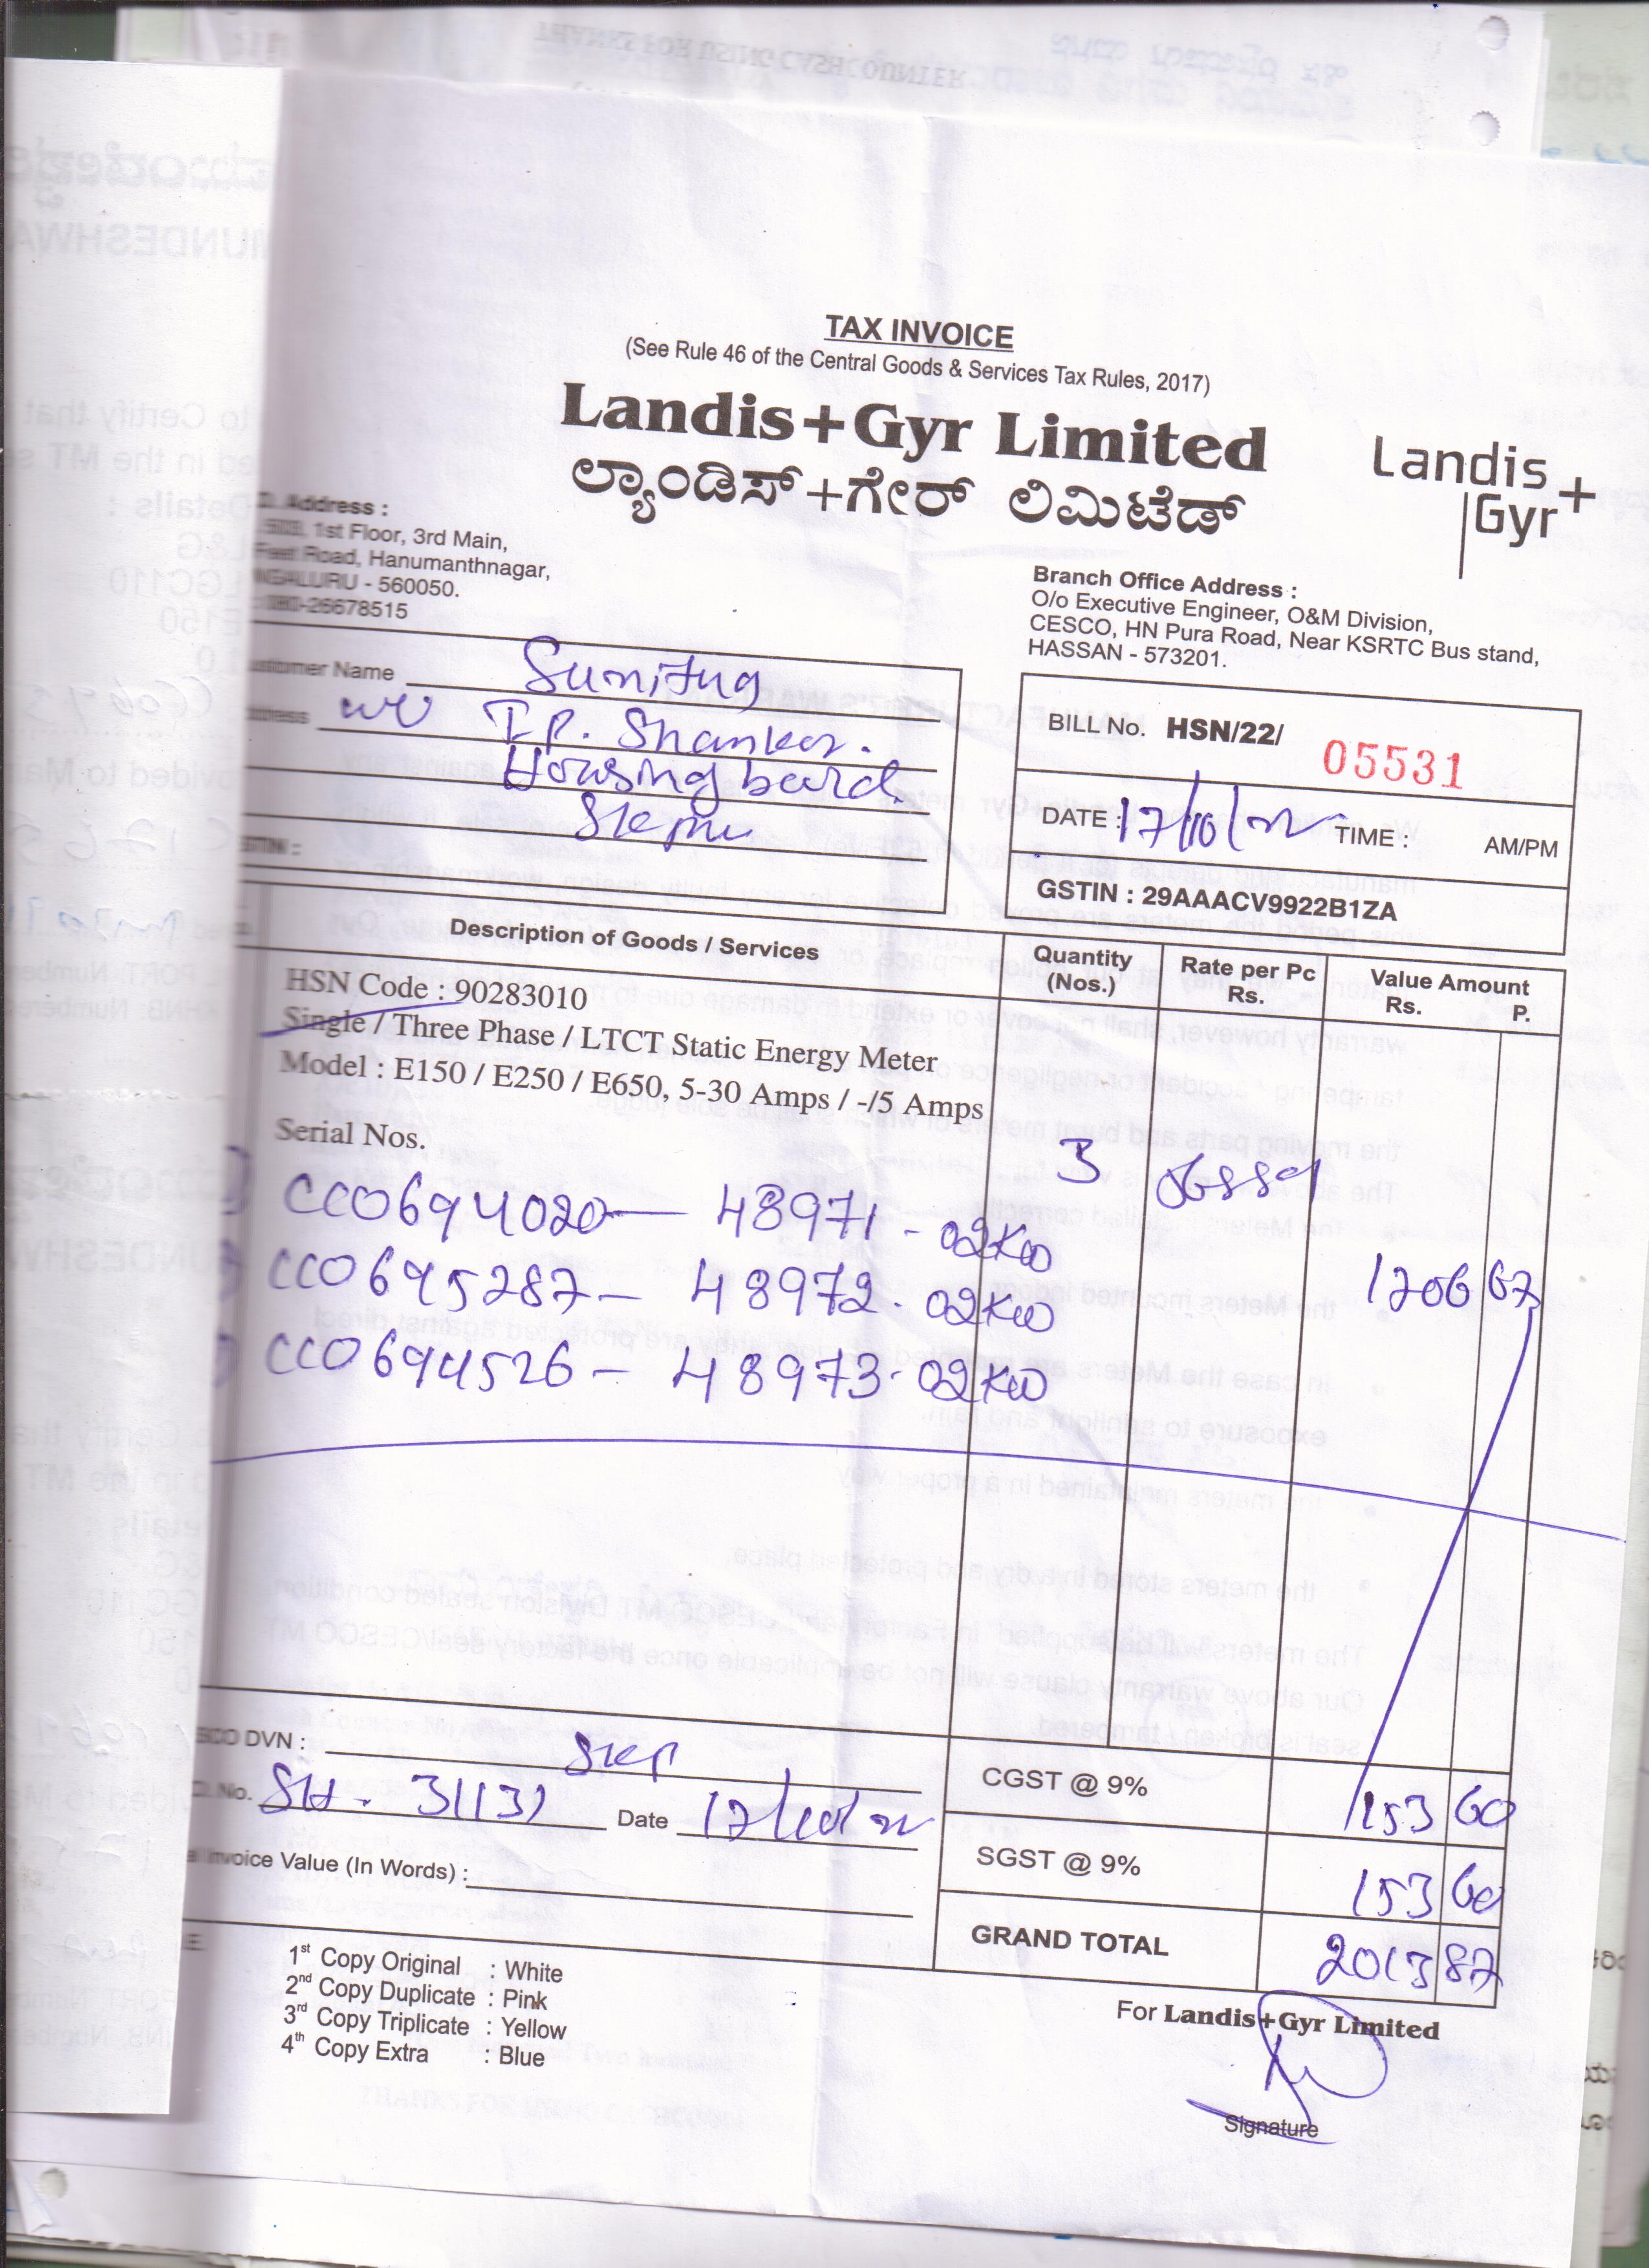 THANKS FOR USING CASHCOUNTER
TAX INVOICE
(See Rule 46 of the Central Goods & Services Tax Rules, 2017)
Landis+Gyr Limited
ಲ್ಯಾಂಡಿಸ್+ಗೇರ್ ಲಿಮಿಟೆಡ್
Landis
Gyr+
Address :
1st Floor, 3rd Main,
Feet Road, Hanumanthnagar,
- 560050.
080-26678515
Branch Office Address :
O/o Executive Engineer, O&M Division,
CESCO, HN Pura Road, Near KSRTC Bus stand,
HASSAN - 573201.
Customer Name
Shankar.
Housing board.
BILL No. HSN/22/ 05531
DATE : 17/10/22 TIME : AM/PM
GSTIN : 29AAACV9922B1ZA
Description of Goods / Services Quantity (Nos.) Rate per Pc Rs. Value Amount Rs. P.
HSN Code : 90283010
Single / Three Phase / LTCT Static Energy Meter
Model : E150 / E250 / E650, 5-30 Amps / -/5 Amps
Serial Nos.
3
CC0694020 — 48971 - 02KW
CC0695287 - 48972 - 02KW
1706 67
CC0694526 - 48973 - 02KW
DVN :
No. Date 17/10/22
Invoice Value (In Words) :
CGST @ 9% 153 60
SGST @ 9% 153 60
GRAND TOTAL 2013 87
1st Copy Original : White
2nd Copy Duplicate : Pink
3rd Copy Triplicate : Yellow
4th Copy Extra : Blue
For Landis+Gyr Limited
Signature